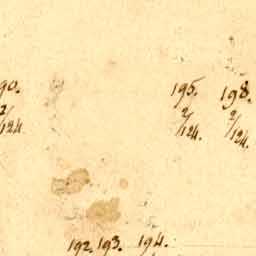 90. 195. 198.
2/124 2/124. 2/124.
192. 193. 194.